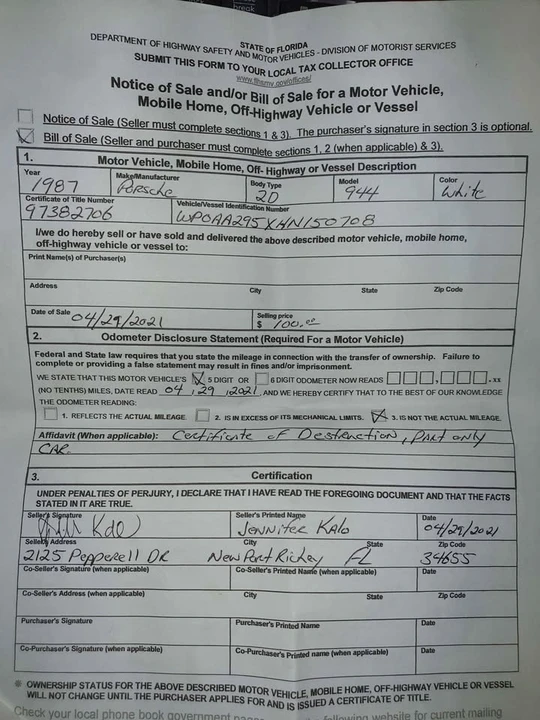 break
STATE OF FLORIDA
DEPARTMENT OF HIGHWAY SAFETY AND MOTOR VEHICLES - DIVISION OF MOTORIST SERVICES
SUBMIT THIS FORM TO YOUR LOCAL TAX COLLECTOR OFFICE
www.flhsmv.gov/offices/
Notice of Sale and/or Bill of Sale for a Motor Vehicle,
Mobile Home, Off-Highway Vehicle or Vessel
Notice of Sale (Seller must complete sections 1 & 3). The purchaser's signature in section 3 is optional.
Bill of Sale (Seller and purchaser must complete sections 1, 2 (when applicable) & 3).
1. Motor Vehicle, Mobile Home, Off- Highway or Vessel Description
Year Make/Manufacturer Body Type Model Color
1987 Porsche 2D 944 White
Certificate of Title Number Vehicle/Vessel Identification Number
97382706 WPOAA295XHN150708
I/we do hereby sell or have sold and delivered the above described motor vehicle, mobile home,
off-highway vehicle or vessel to:
Print Name(s) of Purchaser(s)
Address City State Zip Code
Date of Sale 04/29/2021 Selling price
$ 100.00
2. Odometer Disclosure Statement (Required For a Motor Vehicle)
Federal and State law requires that you state the mileage in connection with the transfer of ownership. Failure to
complete or providing a false statement may result in fines and/or imprisonment.
WE STATE THAT THIS MOTOR VEHICLE'S 5 DIGIT OR 6 DIGIT ODOMETER NOW READS , .xx
(NO TENTHS) MILES, DATE READ 04, 29, 2021, AND WE HEREBY CERTIFY THAT TO THE BEST OF OUR KNOWLEDGE
THE ODOMETER READING:
1. REFLECTS THE ACTUAL MILEAGE. 2. IS IN EXCESS OF ITS MECHANICAL LIMITS. 3. IS NOT THE ACTUAL MILEAGE.
Affidavit (When applicable): Certificate of Destruction, Part only
CAR.
3. Certification
UNDER PENALTIES OF PERJURY, I DECLARE THAT I HAVE READ THE FOREGOING DOCUMENT AND THAT THE FACTS
STATED IN IT ARE TRUE.
Seller's Signature Seller's Printed Name Date
Jennifer Kalo 04/29/2021
Seller's Address City State Zip Code
2125 Pepperell DR New Port Richey FL 34655
Co-Seller's Signature (when applicable) Co-Seller's Printed Name (when applicable) Date
Co-Seller's Address (when applicable) City State Zip Code
Purchaser's Signature Purchaser's Printed Name Date
Co-Purchaser's Signature (when applicable) Co-Purchaser's Printed name (when applicable) Date
* OWNERSHIP STATUS FOR THE ABOVE DESCRIBED MOTOR VEHICLE, MOBILE HOME, OFF-HIGHWAY VEHICLE OR VESSEL
WILL NOT CHANGE UNTIL THE PURCHASER APPLIES FOR AND IS ISSUED A CERTIFICATE OF TITLE.
Check your local phone book government website for current mailing